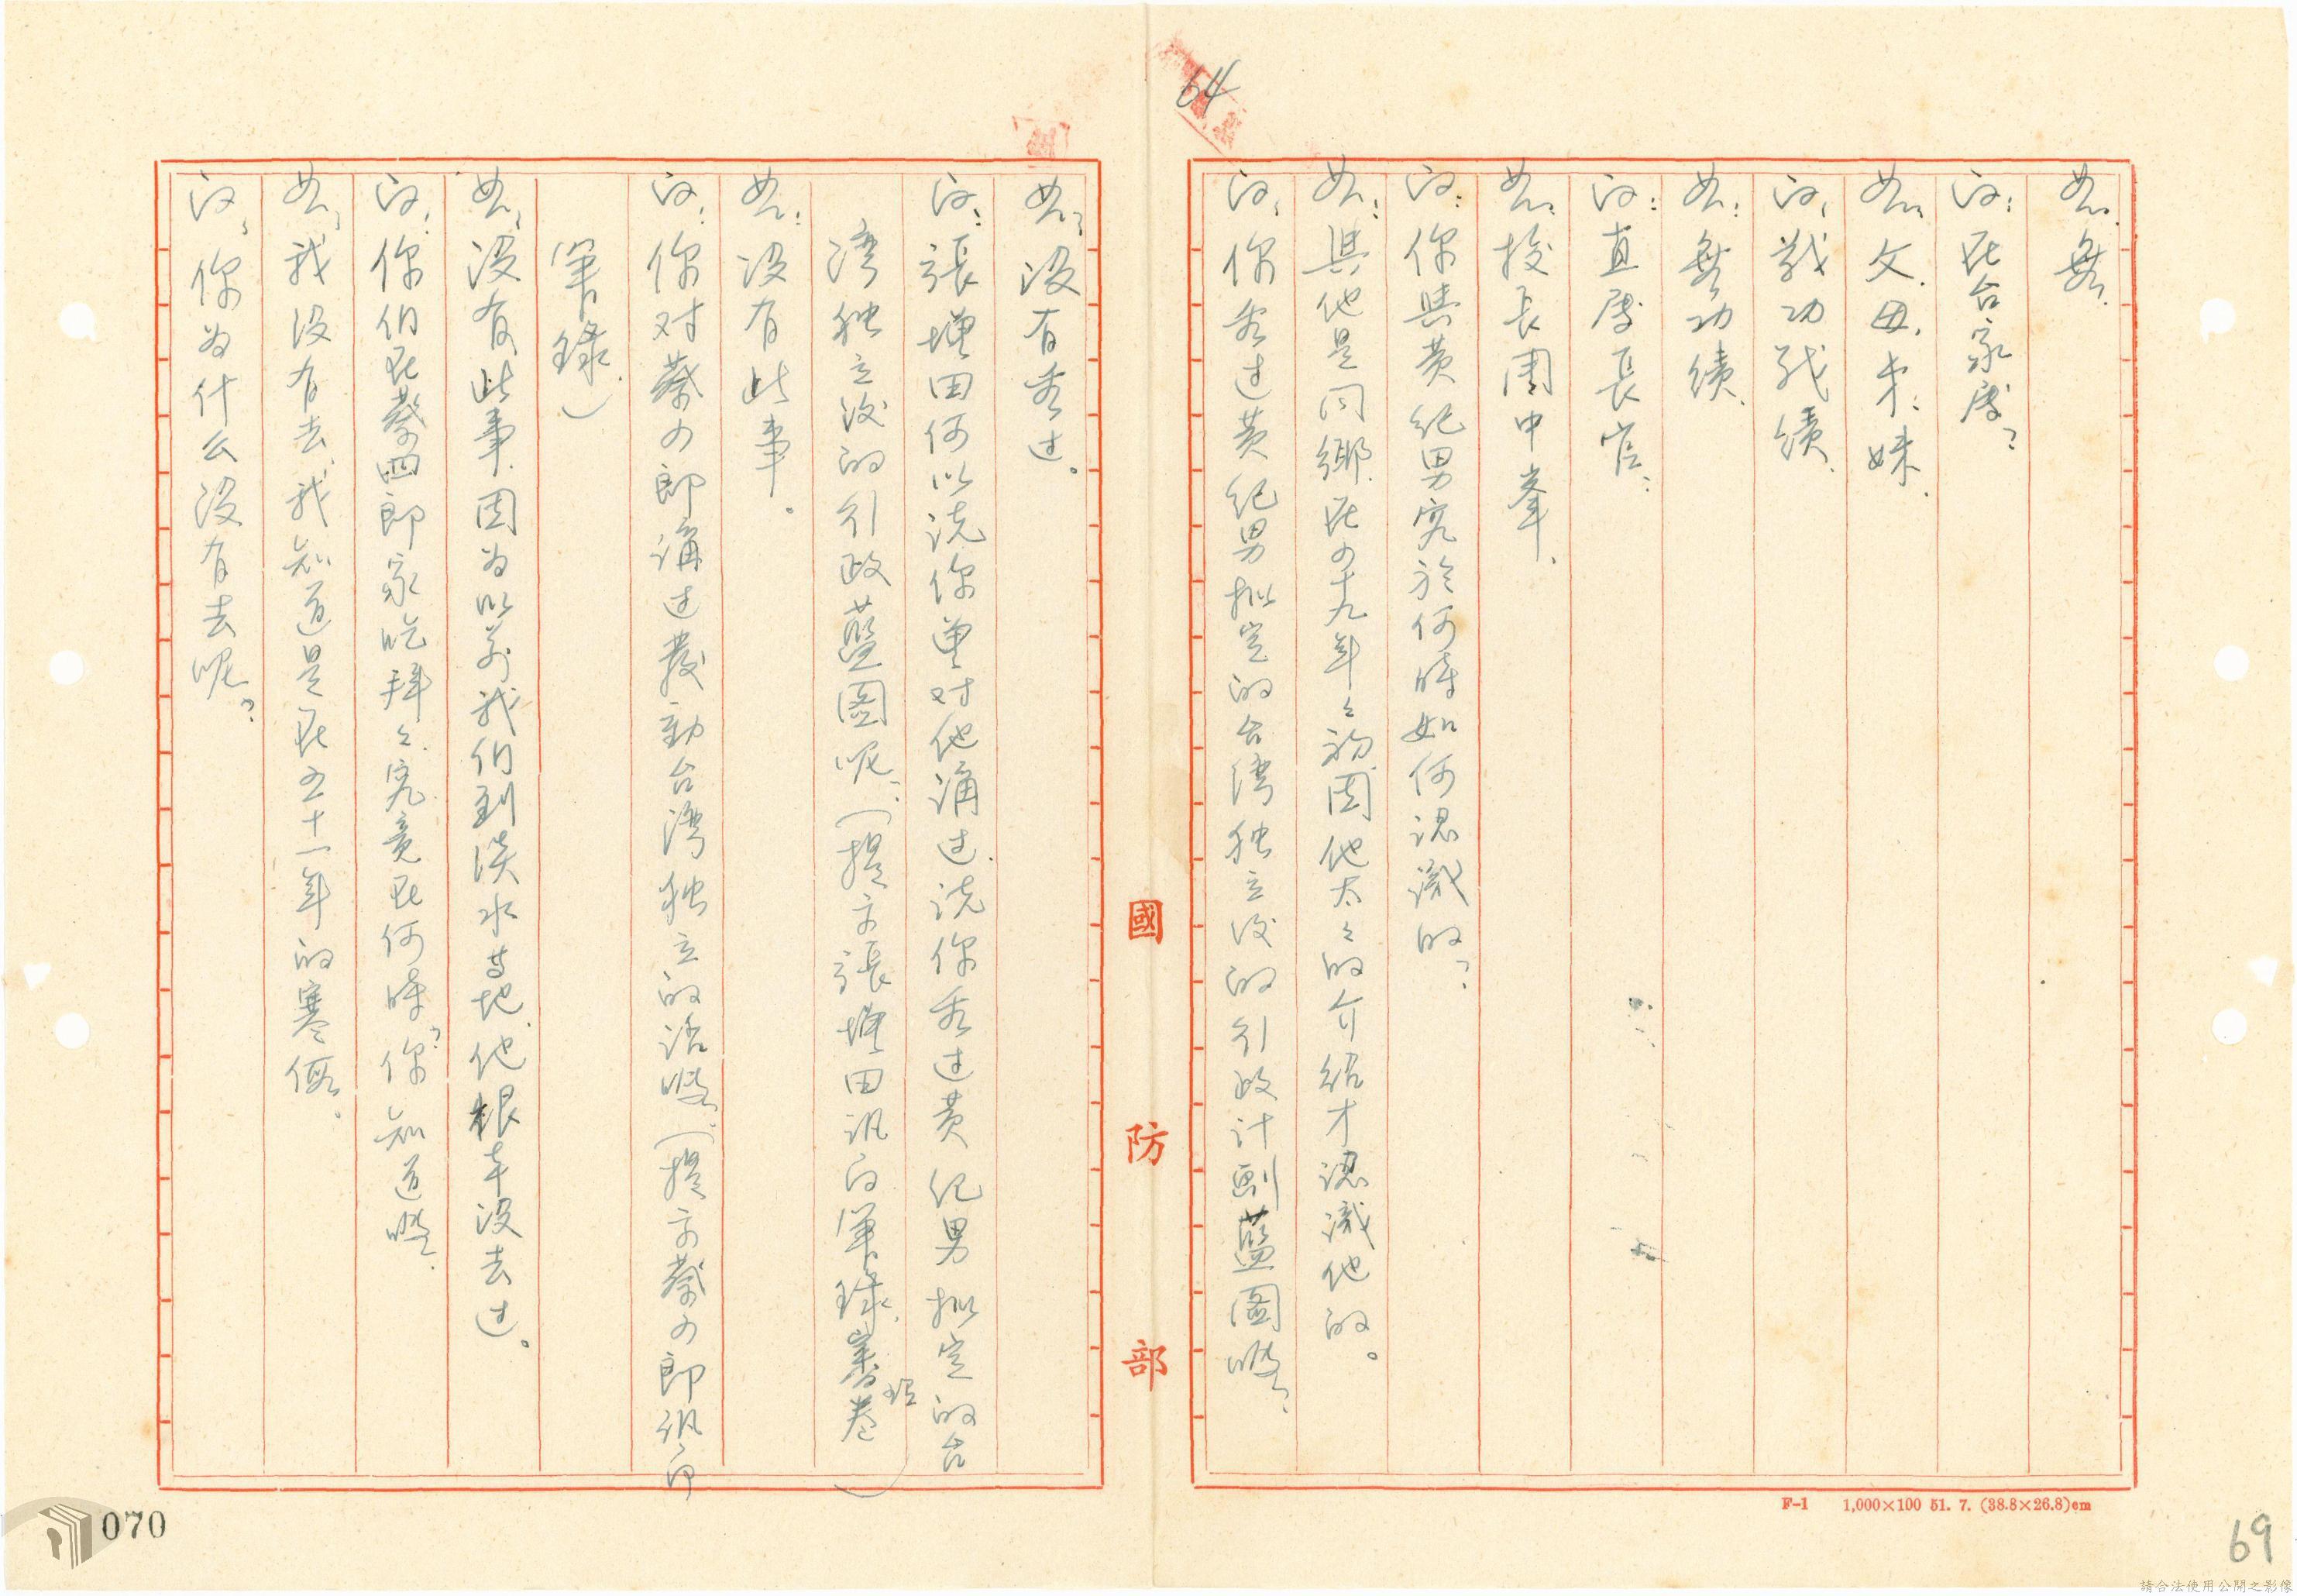 64
答：無。
問：在台家屬？
答：父、母、弟、妹。
問：戰功战績。
答：無功績。
問：直屬長官：
答：校長周中峯。
問：你與黃紀男究於何時如何認識的？
答：與他是同鄉，在四十九年年初，因他太太的介紹才認識他的。
問：你看过黃紀男拟定的台湾独立後的行政計劃藍图嗎？
答：没有看过。
問：張堪田何以说你曾对他講过，说你看过黃紀男拟定的台
湾独立後的行政藍图呢？（提示張堪田訊問筆錄
答：没有此事。
問：你对蔡四郎講过發動台湾独立的話嗎？（提示蔡四郎訊問
筆錄）
答：没有此事，因为以前我们到淡水等地，他根本没去过。
問：你们在蔡四郎家吃拜拜，究竟在何時？你知道嗎？
答：我没有去，我知道是在五十一年的寒假。
問：你为什么没有去呢？
國防部
F-1 1,000×100 51. 7. (38.8×26.8)cm
070
69
請合法使用公開之影像